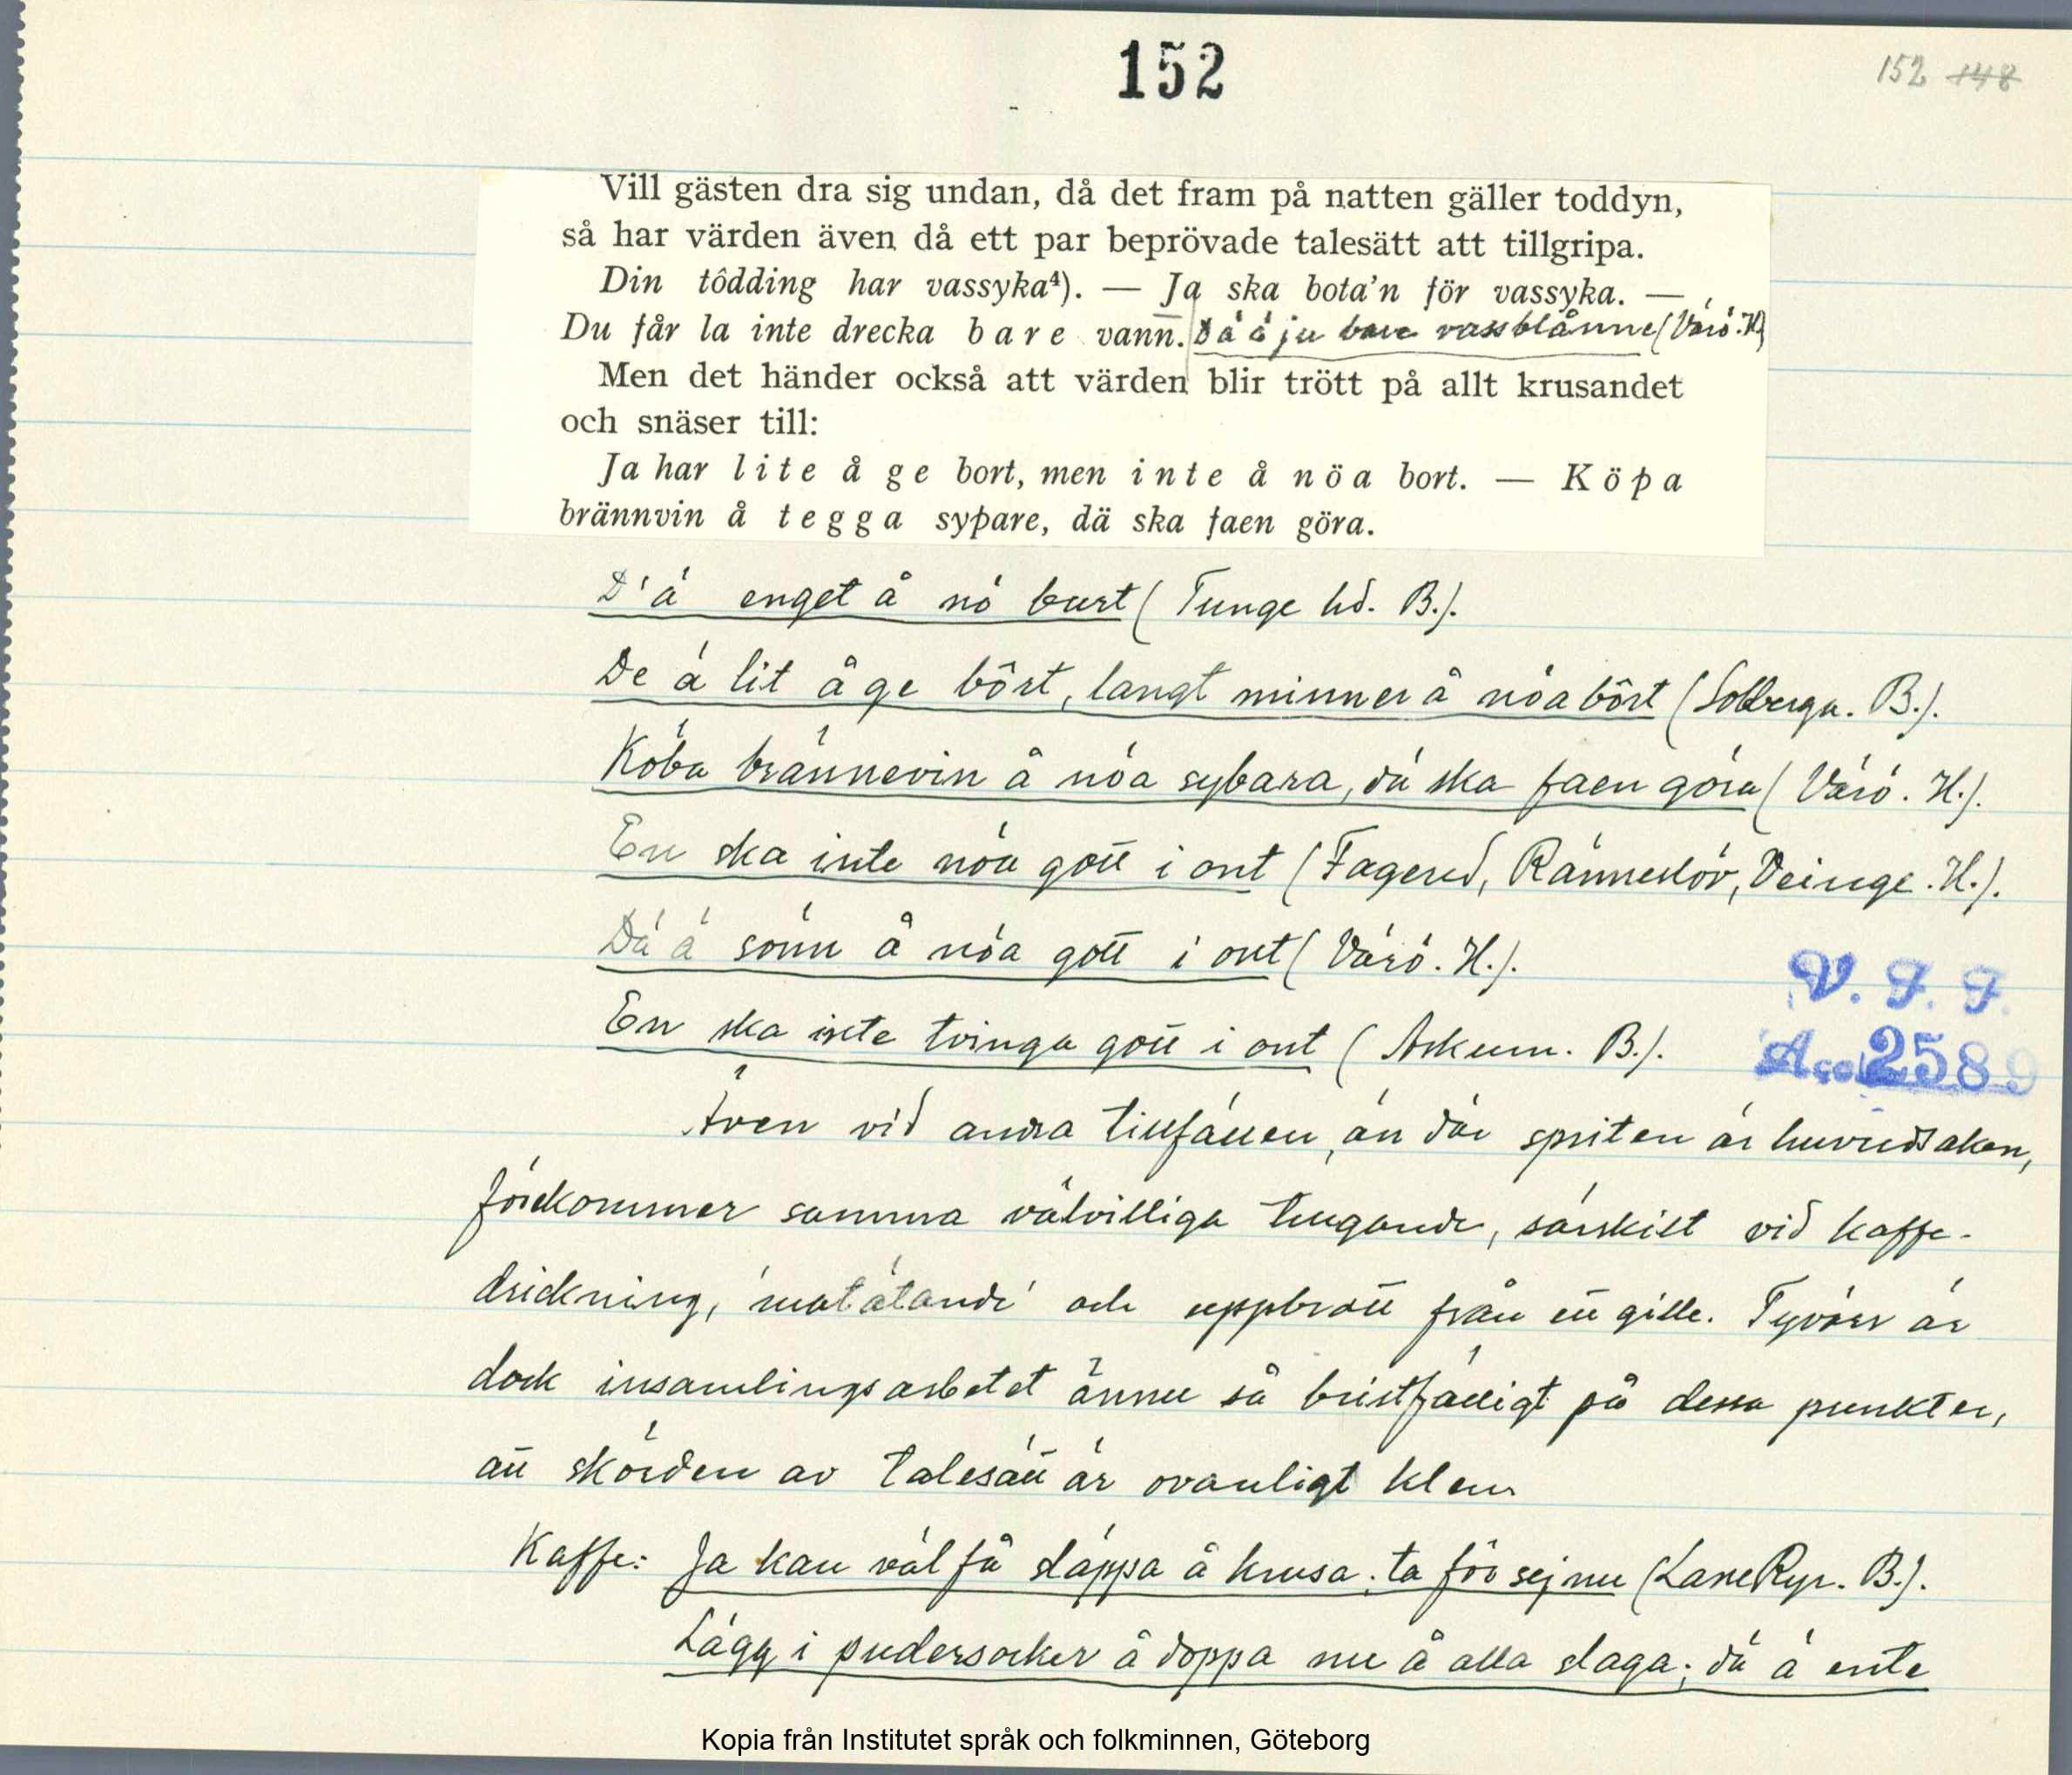 152
152 148
Vill gästen dra sig undan, då det fram på natten gäller toddyn,
så har värden även då ett par beprövade talesätt att tillgripa.
Din tôdding har vassyka⁴). — Ja ska bota'n för vassyka. —
Du får la inte drecka bare vann. Dä ä ju bare vassblånne (Värö. H.)
Men det händer också att värden blir trött på allt krusandet
och snäser till:
Ja har lite å ge bort, men inte å nöa bort. — Köpa
brännvin å tegga sypare, dä ska faen göra.
D'ä enget å nö burt (Tunge hd. B.).
De ä lit å ge bôrt, langt minner å nöa bôrt (Solberga. B.).
Köba brännevin å nöa sybara, dä ska faen göra (Värö. H.).
En ska inte nöa gott i ont (Fagered, Ränneslöv, Veinge. H.).
Dä ä sönn å nöa gott i ont (Värö. H.).
En ska inte tvinga gott i ont (Askum. B.).
V. F. F.
Acc. 2589
Även vid andra tillfällen, än där spriten är huvudsaken,
förekommer samma välvilliga trugande, särskilt vid kaffe-
drickning, 'matätande' och uppbrott från ett gille. Tyvärr är
dock insamlingsarbetet ännu så bristfälligt på dessa punkter,
att skörden av talesätt är ovanligt klen
Kaffe: Ja kan väl få släppa å krusa; ta för sej nu (Lane Ryr. B.).
Lägg i pudersocker å doppa nu å alla slaga; dä ä ente
Kopia från Institutet språk och folkminnen, Göteborg